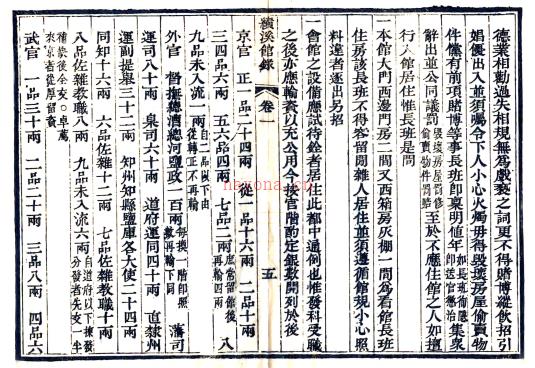 德業相勸過失相規無為戲褻之詞更不得賭博縱飲招引
娼優出入並須囑令下人小心火燭毋得毀壞房屋偷賣物
件儻有前項賭博等事長班即稟明值年如長班徇隱即送官懲治集衆
辭出並公同議罰毀壞房屋罰修偷賣物件罰賠至於不應住館之人如擅
行入館居住惟長班是問
一本館大門西邊門房二間又西箱房灰棚一間為看館長班
住房該長班不得容留閒雜人居住並須遵循館規小心照
料違者逐出另招
一會館之設備應試待銓者居住此都中通例也惟發科受職
之後亦應輸貲以充公用今按官階酌定銀數開列於後
績溪館錄 卷一 五
京官 正一品二十四兩 從一品十六兩 二品十兩
三四品六兩 五六品四兩 七品二兩
九品未入流一兩自二品以下由從轉正不再輸
外官 督撫總漕總河鹽政一百兩每換一階即照數再輸下同 藩司
運司八十兩 臬司六十兩 道府運同四十兩 直隸州
運副提舉三十二兩 知州知縣鹽庫各大使二十四兩
同知十六兩 六品佐雜十二兩 七品佐雜教職十兩
八品佐雜教職八兩 九品未入流六兩
武官 一品三十兩 二品二十兩 三品八兩 四品六
nayona.cn